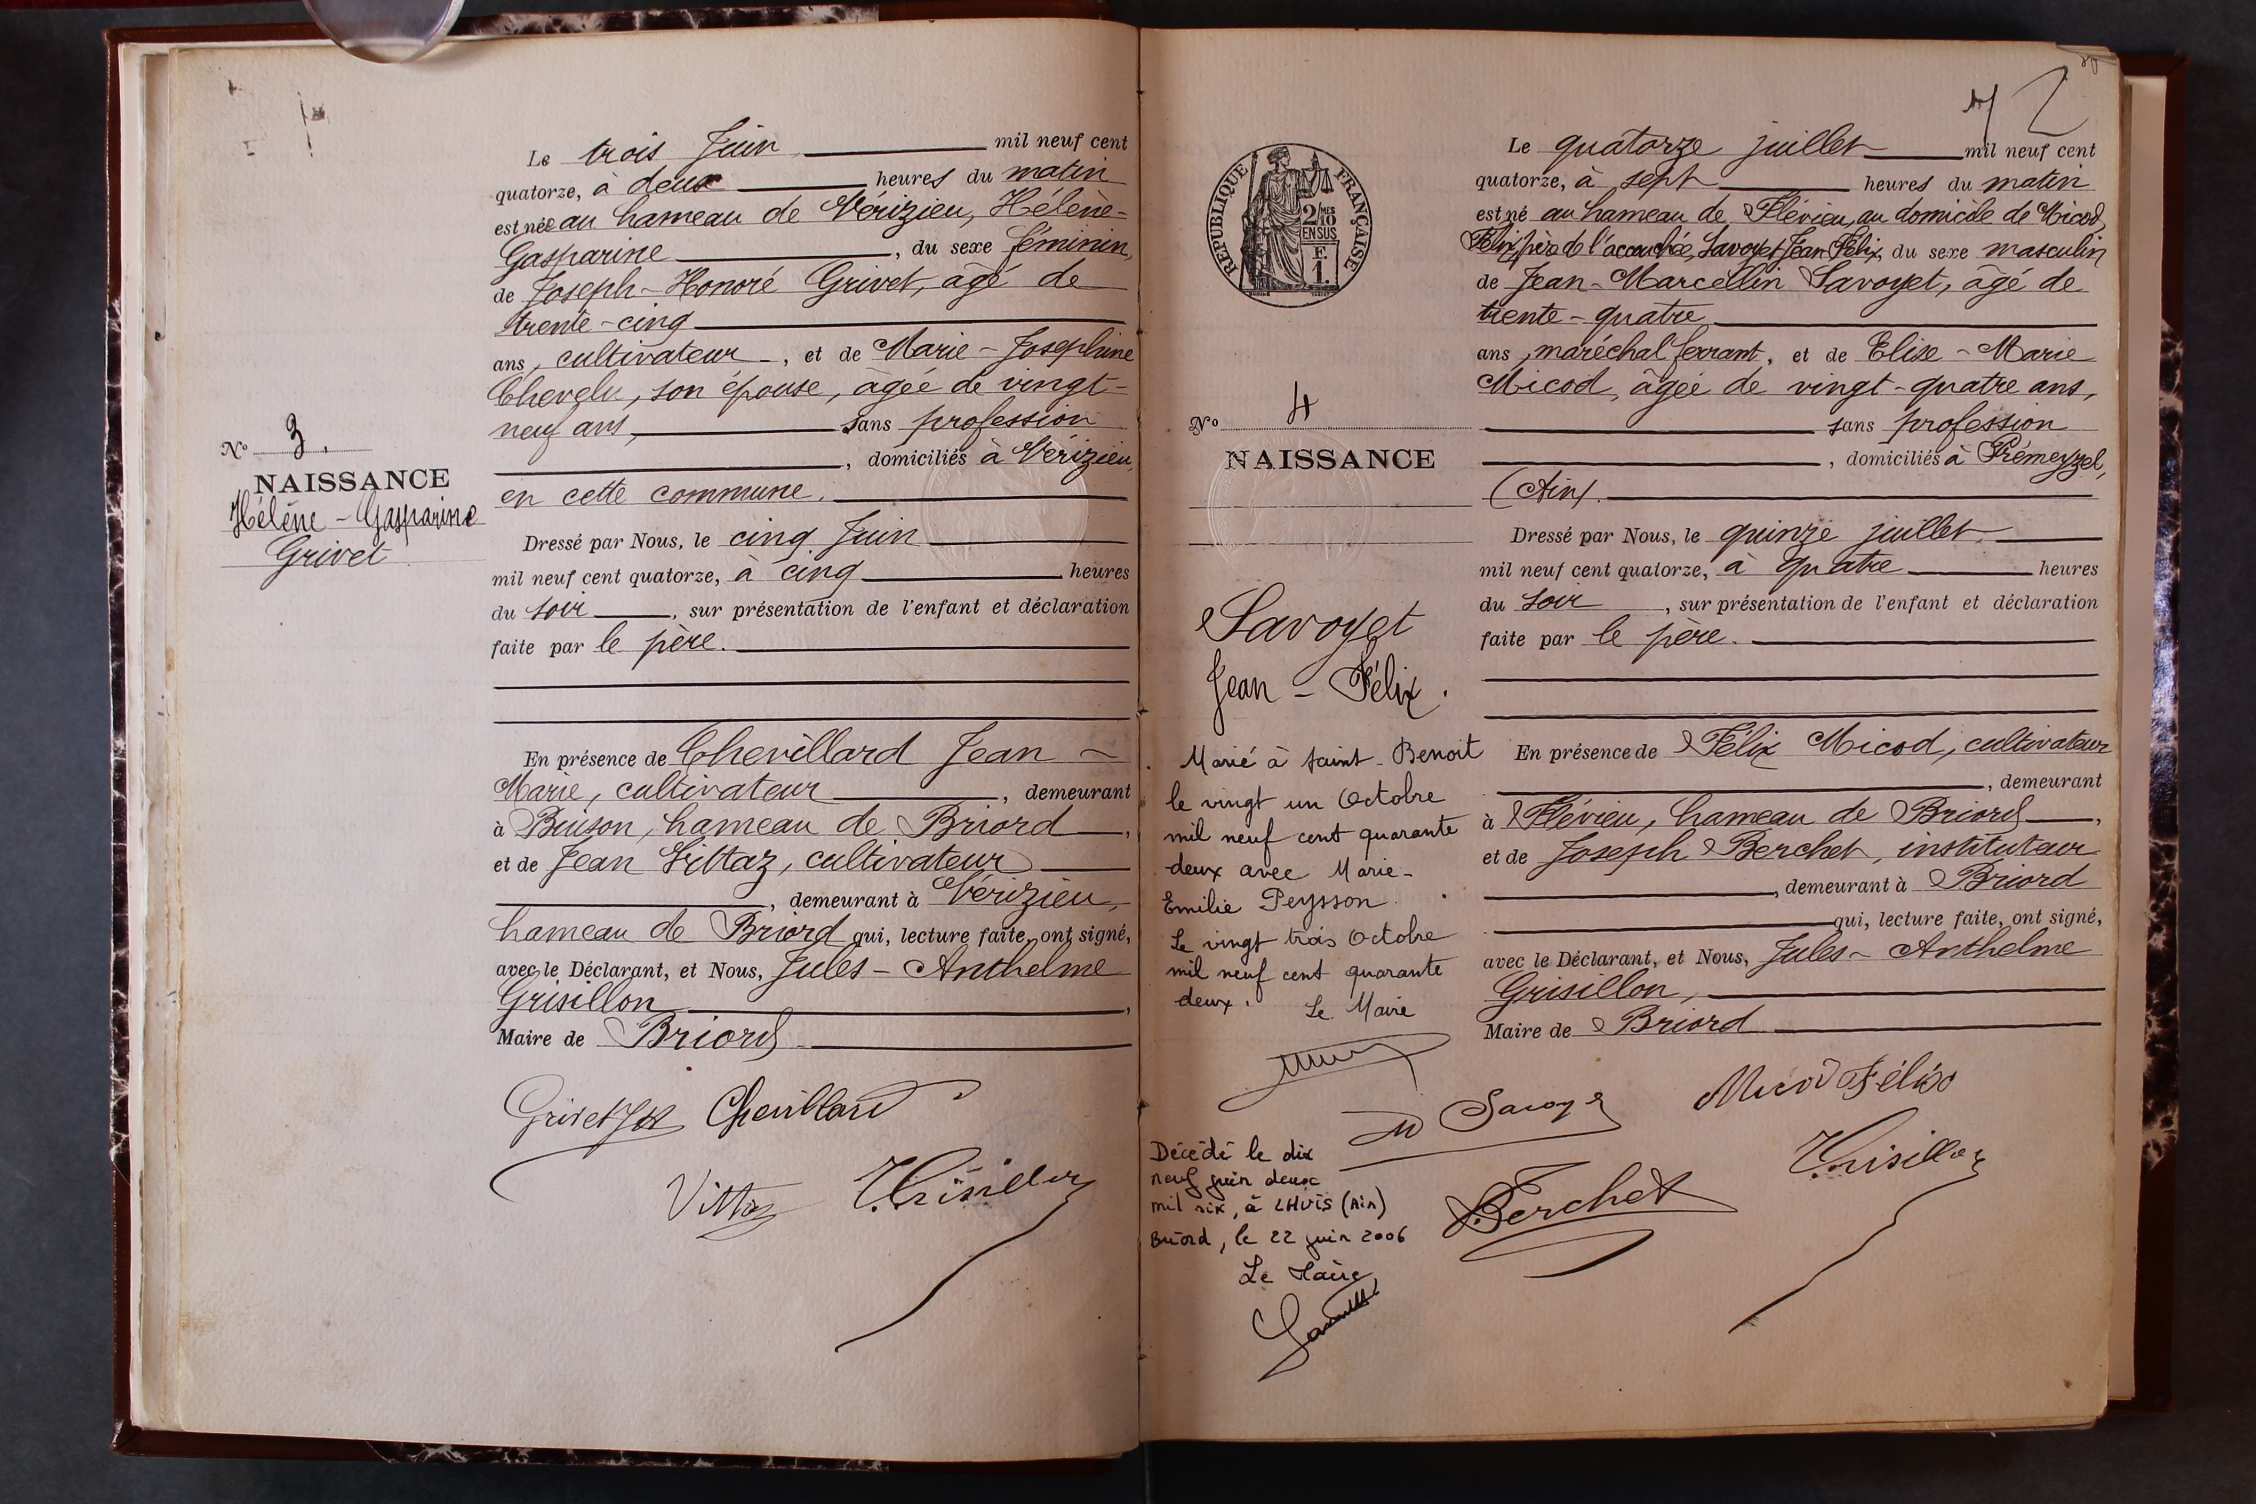 Le trois Juin mil neuf cent
quatorze, à deux heures du matin
est née au hameau de Vérizieu, Hélène-
Gasparine, du sexe féminin,
de Joseph-Honoré Grivet, âgé de
trente-cinq
ans, cultivateur, et de Marie-Josephine
Chevelu, son épouse, âgée de vingt-
neuf ans, sans profession
, domiciliés à Vérizieu,
en cette commune.
N° 3.
NAISSANCE
Hélène-Gasparine
Grivet
Dressé par Nous, le cinq Juin
mil neuf cent quatorze, à cinq heures
du soir, sur présentation de l'enfant et déclaration
faite par le père.
En présence de Chevillard Jean-
Marie, cultivateur, demeurant
à Buison, hameau de Briord,
et de Jean Vittaz, cultivateur
, demeurant à Vérizieu,
hameau de Briord qui, lecture faite, ont signé,
avec le Déclarant, et Nous, Jules-Anthelme
Grisillon,
Maire de Briord
Grivet Jh Chevillard
Vittaz J. Grisillon
42
RÉPUBLIQUE FRANÇAISE
2/10 MES
EN SUS
F.
1.
N° 4
NAISSANCE
Savoyet
Jean-Félix.
Marié à Saint-Benoit
le vingt un Octobre
mil neuf cent quarante
deux avec Marie-
Emilie Peysson.
Le vingt trois Octobre
mil neuf cent quarante
deux. Le Maire
Décédé le dix
neuf juin deux
mil six, à LHUIS (Ain)
Briord, le 22 juin 2006
Le Maire,
Le quatorze juillet mil neuf cent
quatorze, à sept heures du matin
est né au hameau de Flévieu, au domicile de Micod,
Félix, père de l'accouchée, Savoyet Jean Félix, du sexe masculin
de Jean-Marcellin Savoyet, âgé de
trente-quatre
ans, maréchal ferrant, et de Elise-Marie
Micod, âgée de vingt-quatre ans,
sans profession
, domiciliés à Prémeyzel,
(Ain).
Dressé par Nous, le quinze juillet
mil neuf cent quatorze, à quatre heures
du soir, sur présentation de l'enfant et déclaration
faite par le père.
En présence de Félix Micod, cultivateur
, demeurant
à Flévieu, hameau de Briord,
et de Joseph Berchet, instituteur
, demeurant à Briord
qui, lecture faite, ont signé,
avec le Déclarant, et Nous, Jules-Anthelme
Grisillon,
Maire de Briord
Savoyet Micod Félix
Berchet J. Grisillon